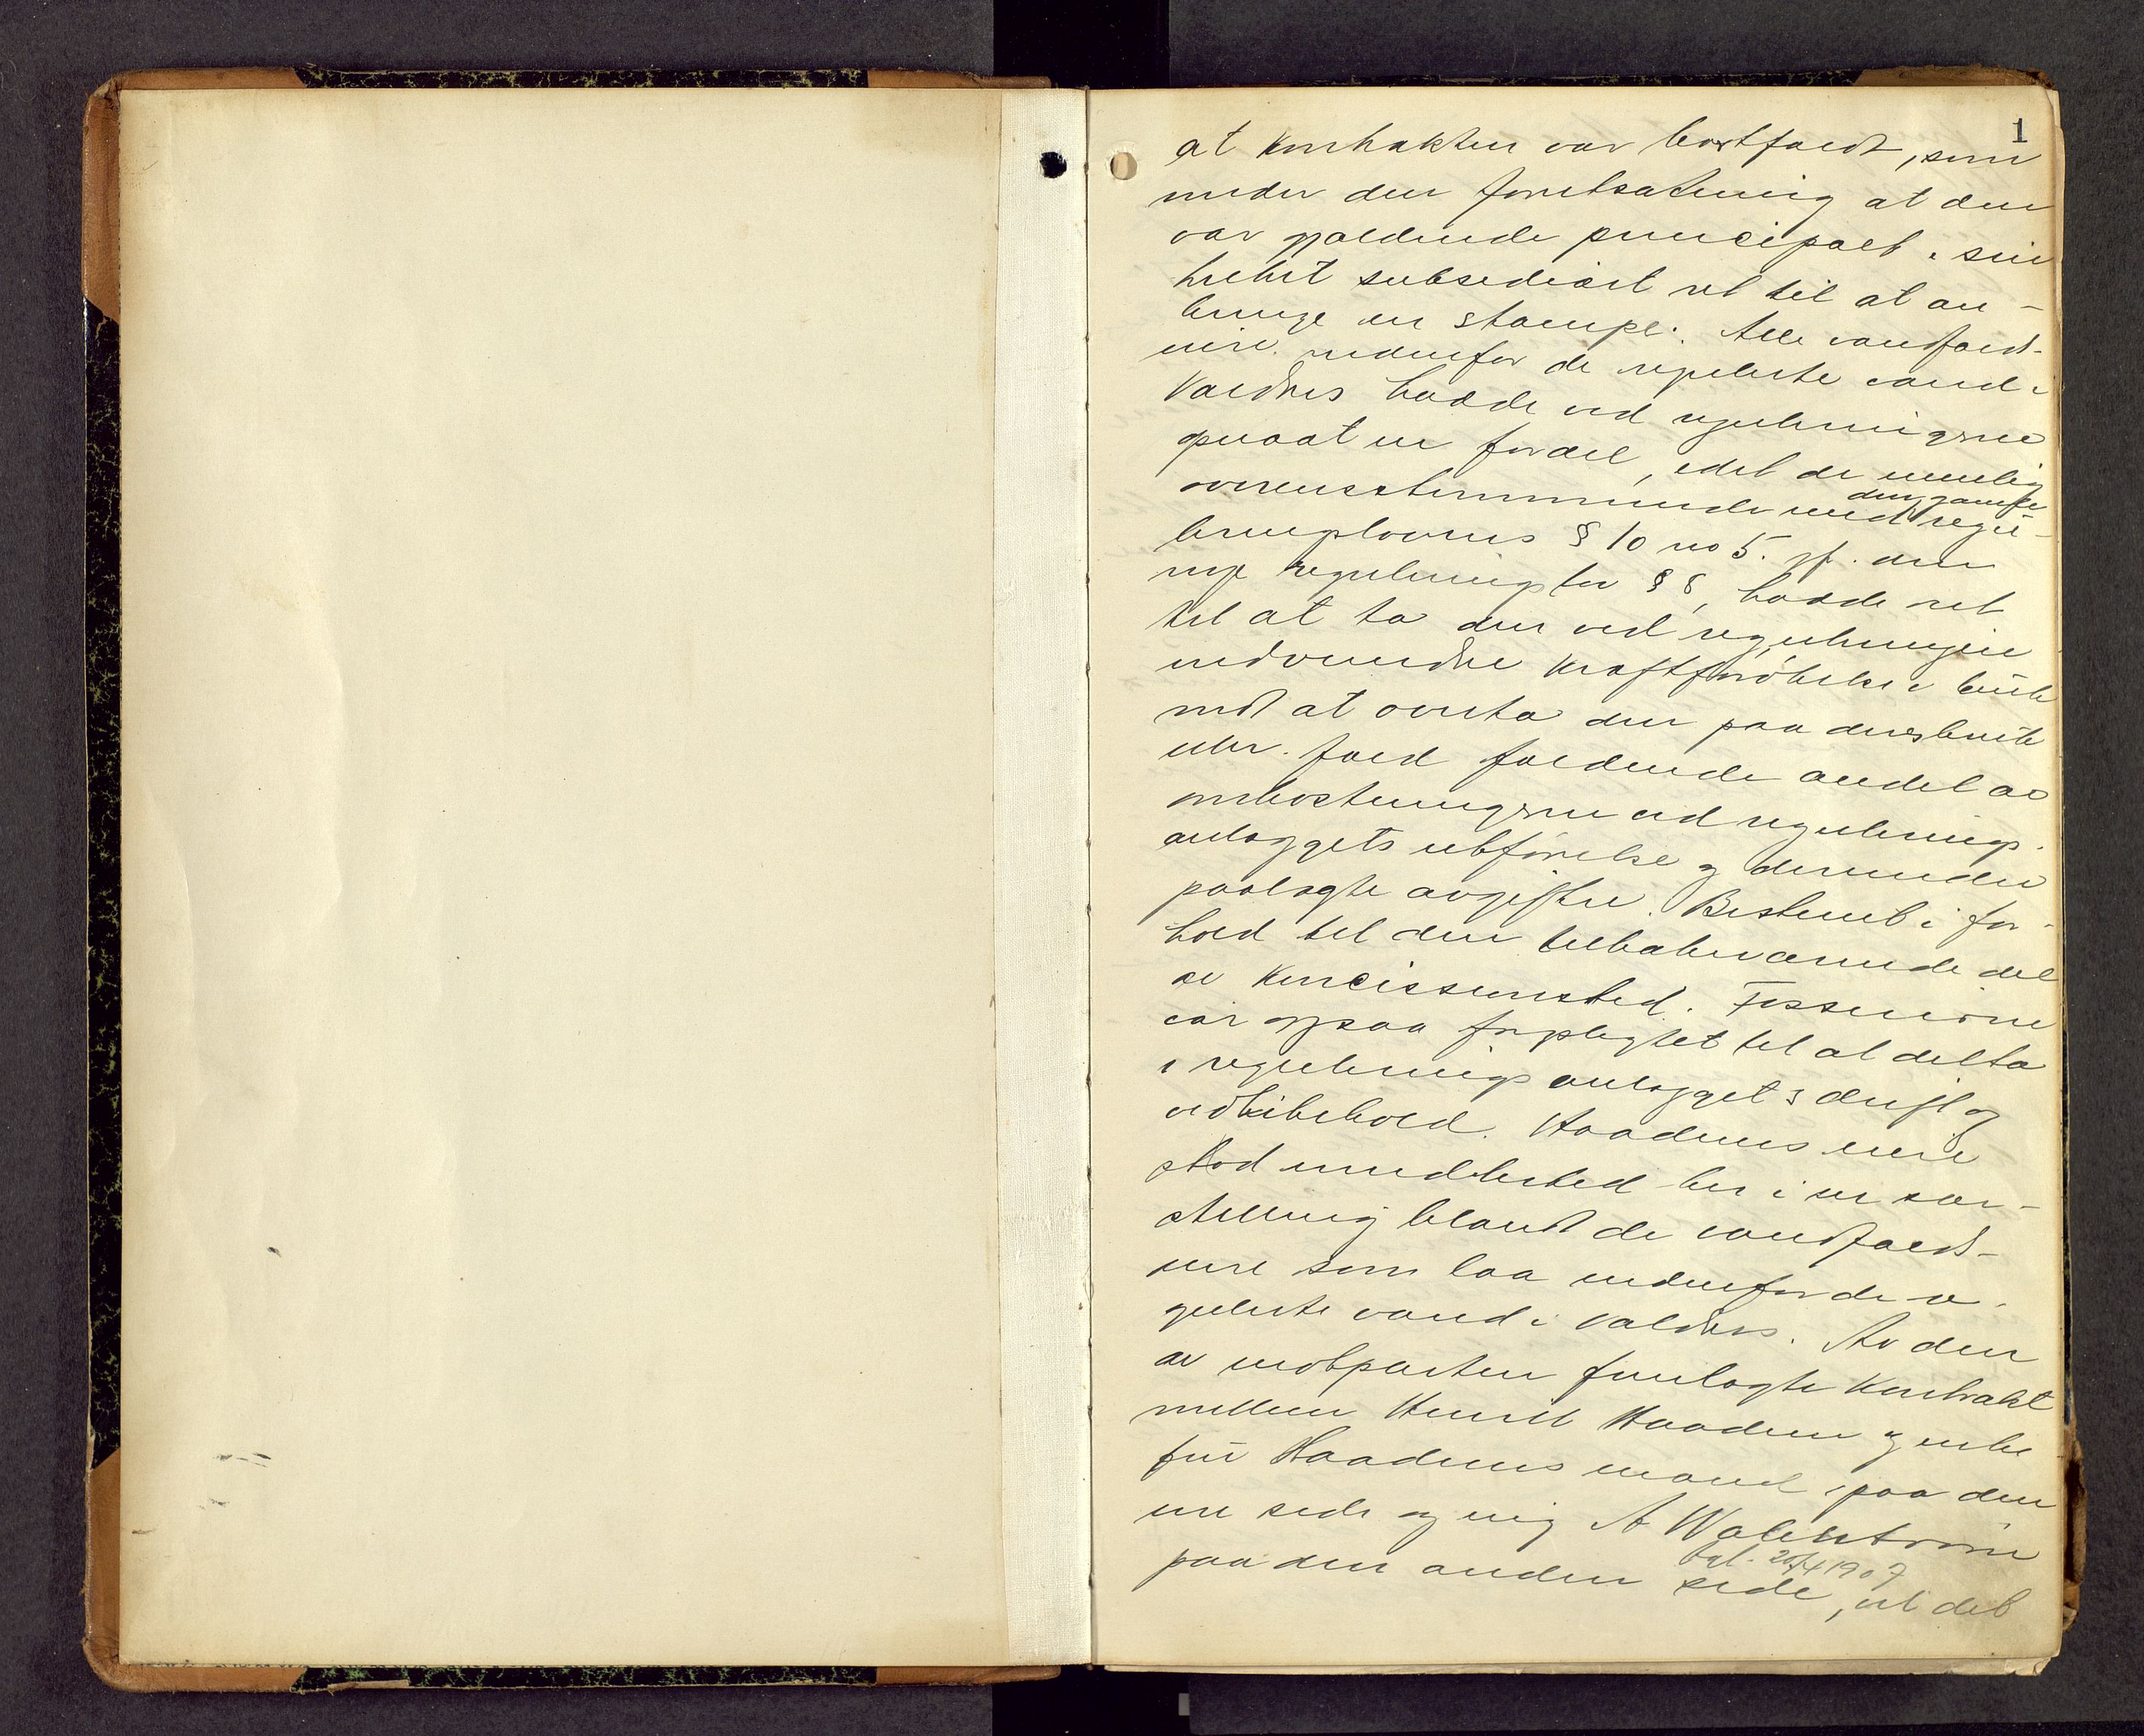 1
at kontrakten var bortfaldt, som
under den forutsætning at den
var gjældende principalt i sin
helhet subsediært ret til at an-
bringe en stampe. Alle vandfalds-
eiere nedenfor de regulerte vand i
Valdres hadde ved reguleringerne
opnaat en fordel, idet de nemlig
overensstemmende med den gamle regu-
leringslovens § 10 no 5. jf. den
nye reguleringslov § 8, hadde ret
til at ta den ved reguleringen
indvundne kraftforøkelse i bruk
mot at overta den paa den sbenyt
ede. fald faldende andel av
omkostningerne ved regulerings-
anlæggets utførelse og derunder
paalagte avgifter. Bestemt i for-
hold til den tilbakeværende del
av koncissionstid. Fosseeierne
var ogsaa forpligtet til at delta
i reguleringsanlæggets drift og
vedlikehold. Haadems eiere
stod imidlertid her i en sær-
stilling blandt de vandfalds-
eiere som laa nedenfor de re-
gulerte vand i Valdres. Av den
av motparten fremlagte kontrakt
mellem Haadem og enke
fru Haadems mand paa den
ene side og ing A Walnstrøm
paa den anden side, dat. 20/4 1907, vil det